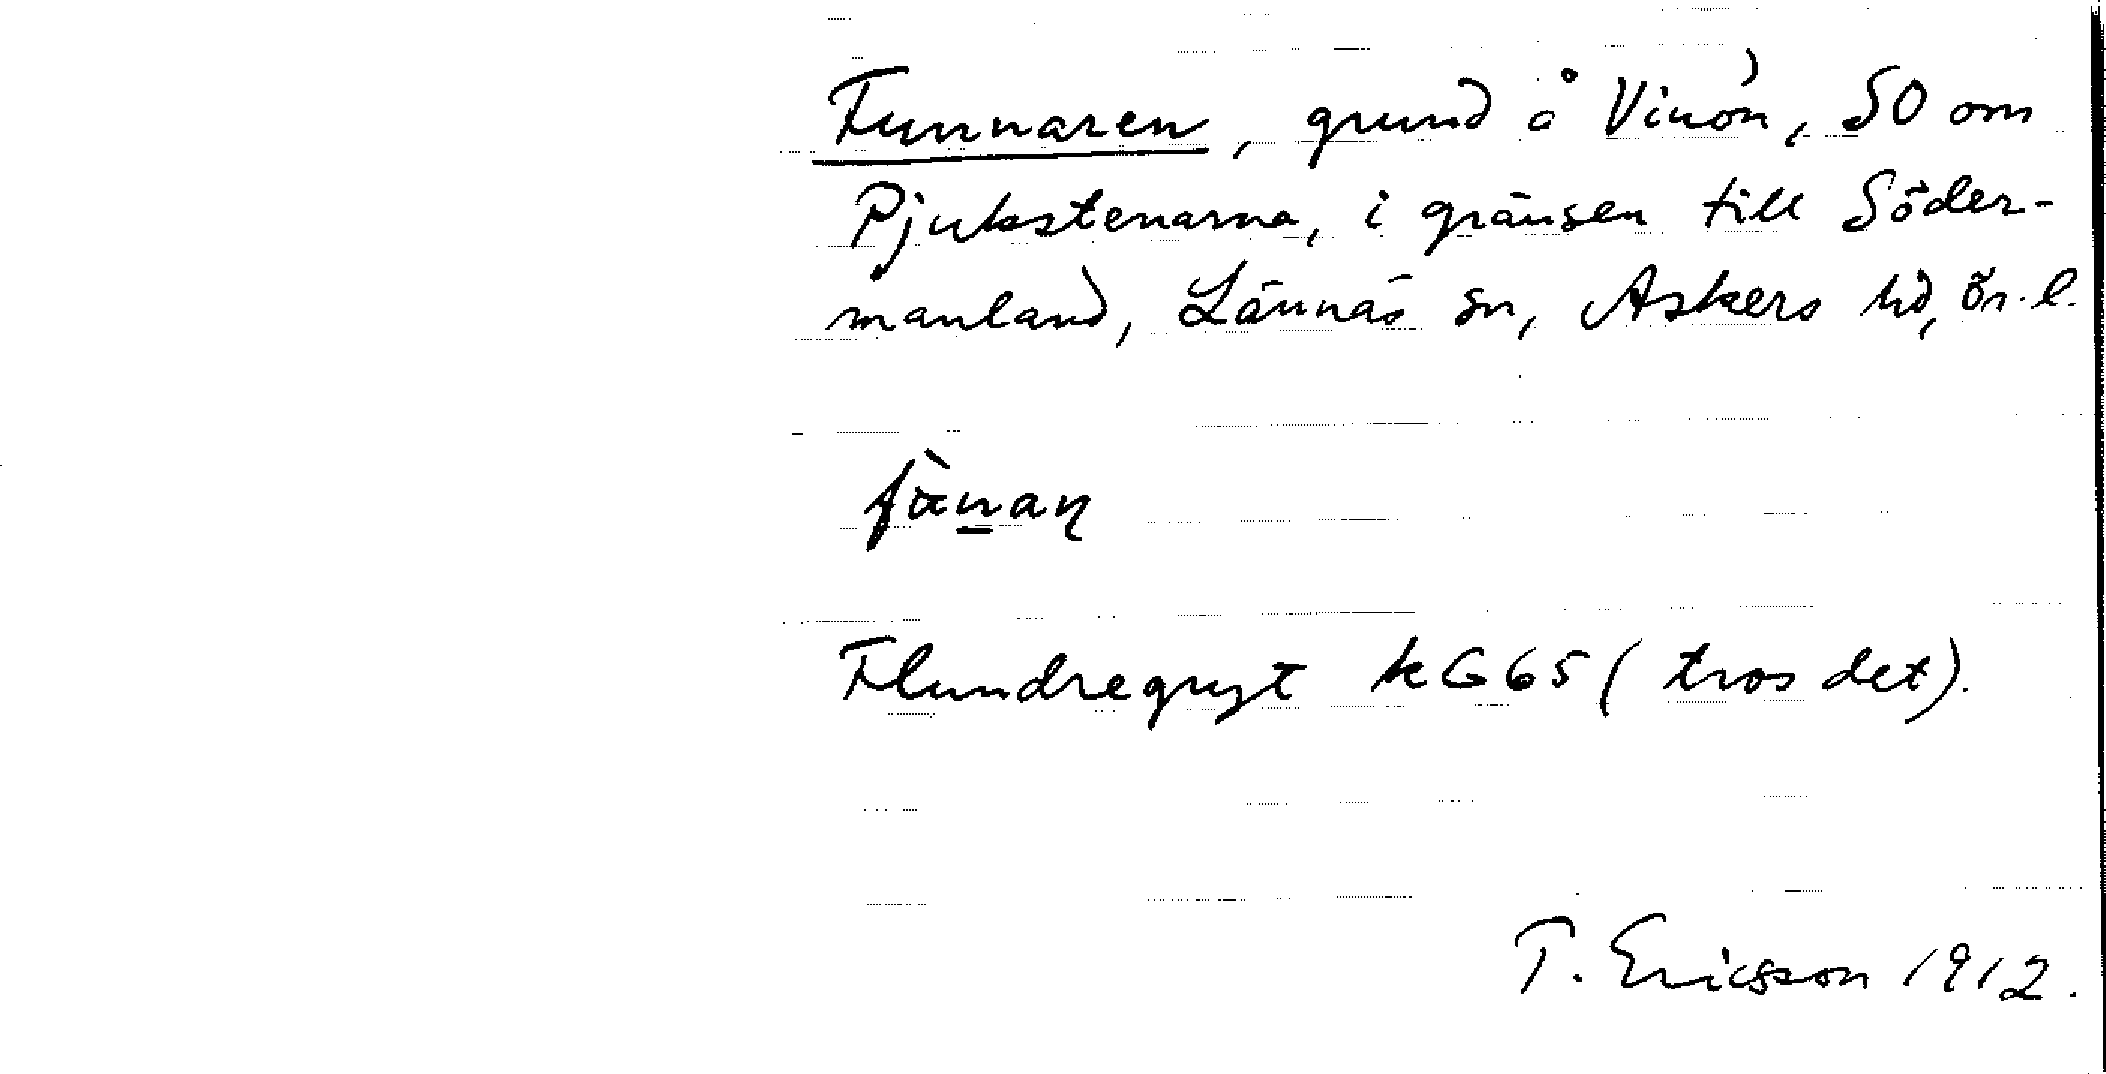 Funnaren, grund å Vinön, SO om
Pjukstenarna, i gränsen till Söder-
manland, Lännäs sn, Askers hd, Ör. l.
fànaꞑ
Flundregryt kG65 (tros det).
T. Ericsson 1912.